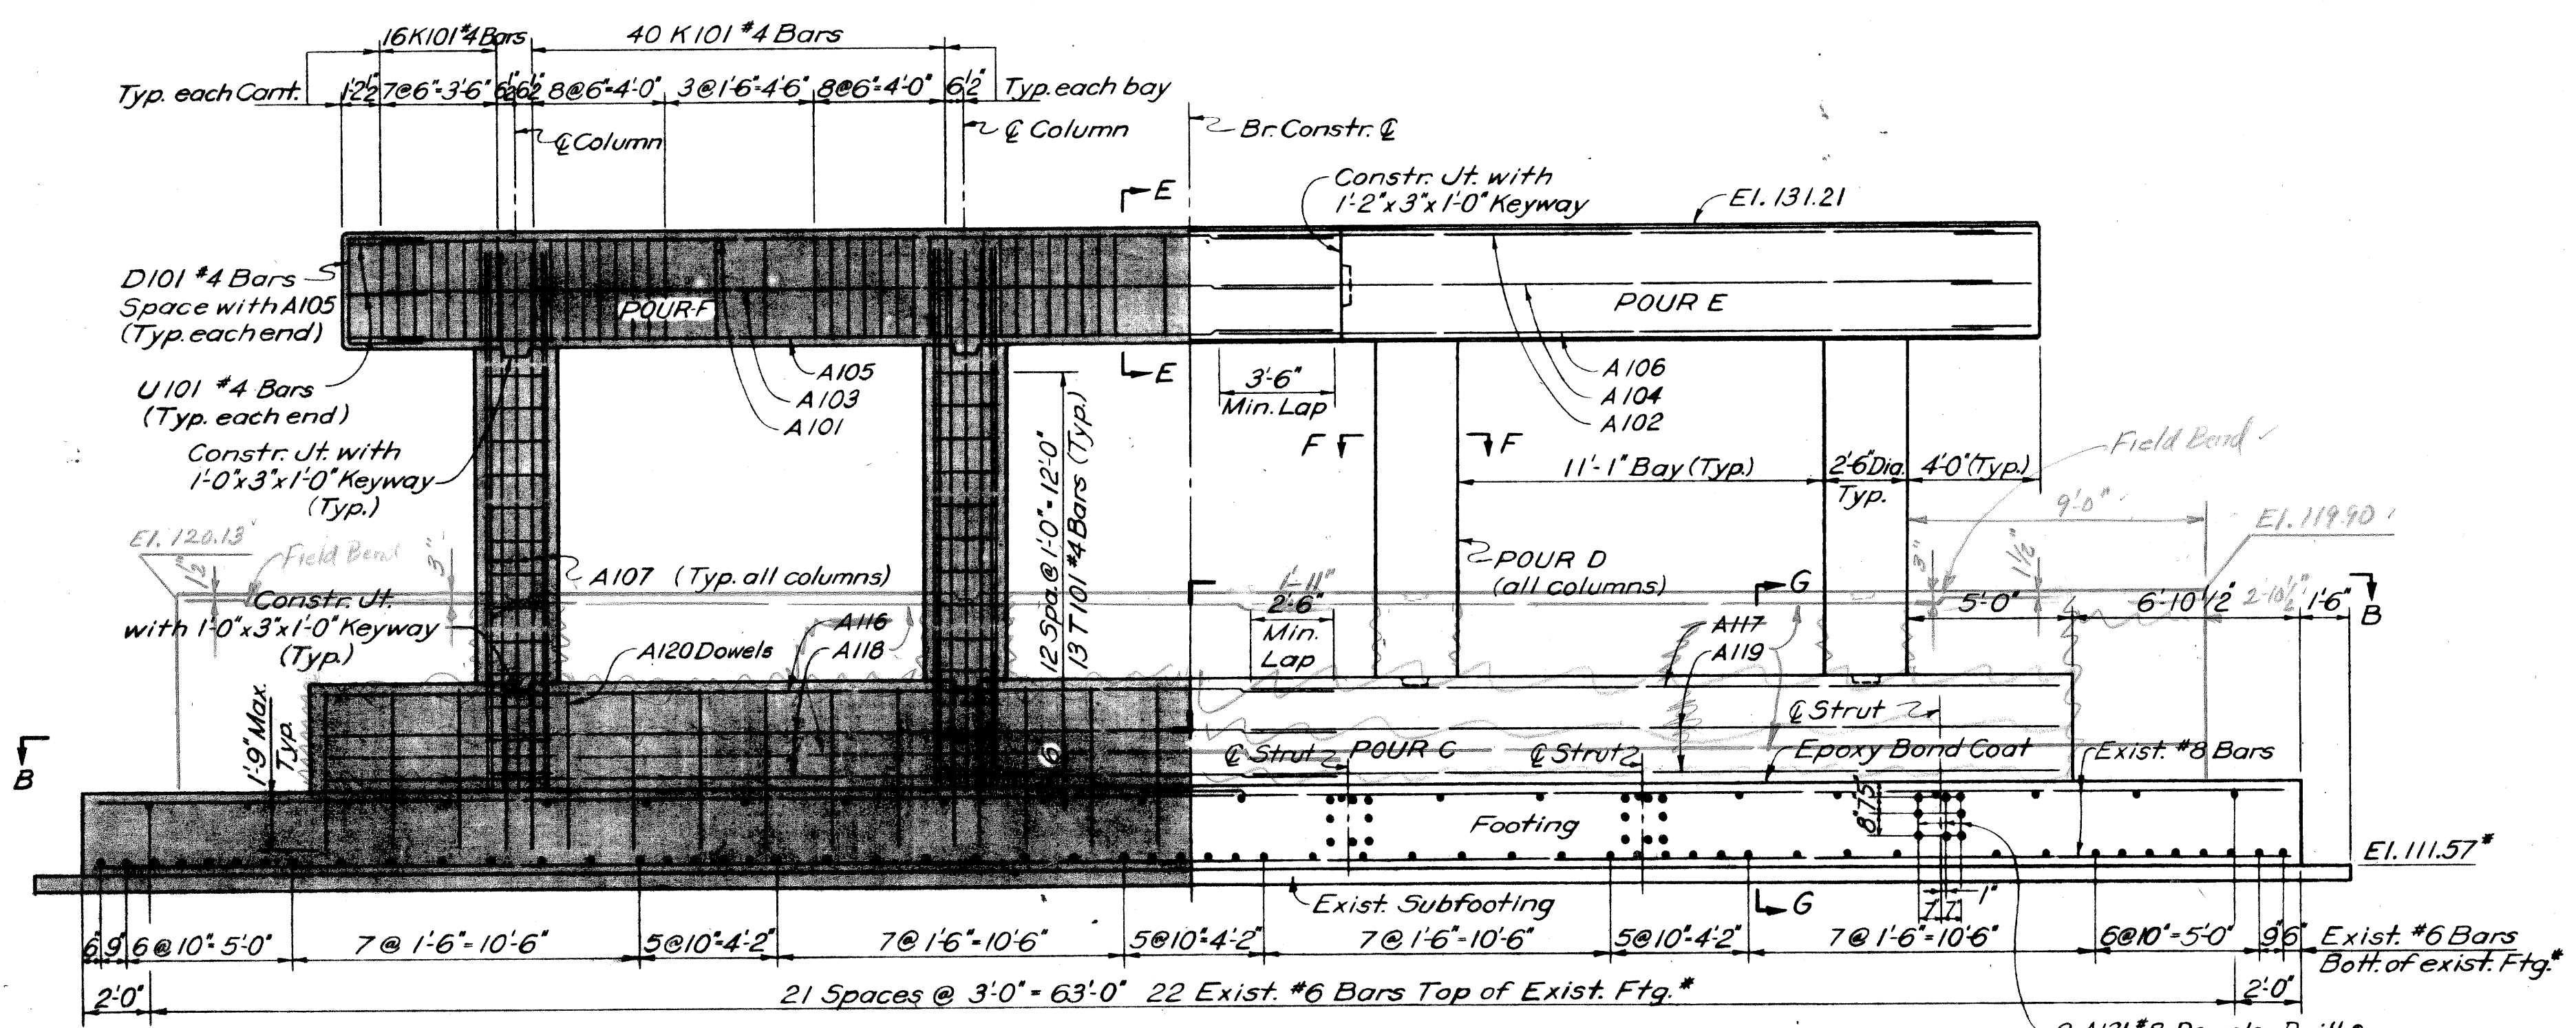 16 K101 #4 Bars
40 K101 #4 Bars
Typ. each Cant.
1'-2½"
7@6"=3'-6"
6½"
6½"
8@6"=4'-0"
3@1'-6"=4'-6"
8@6"=4'-0"
6½"
Typ. each bay
℄ Column
℄ Column
Br. Constr. ℄
E
Constr. Jt. with
1'-2"x3"x1'-0" Keyway
El. 131.21
D101 #4 Bars
Space with A105
(Typ. each end)
POUR-F
POUR E
U101 #4 Bars
(Typ. each end)
A105
A103
A101
E
3'-6"
Min. Lap
A106
A104
A102
Constr. Jt. with
1'-0"x3"x1'-0" Keyway
(Typ.)
12 Spa. @ 1'-0" = 12'-0"
13 T101 #4 Bars (Typ.)
F
F
11'-1" Bay (Typ.)
2'-6" Dia.
Typ.
4'-0" (Typ.)
Field Bend
9'-0"
El. 119.90
El. 120.13
Field Bend
1½"
3"
A107 (Typ. all columns)
POUR D
(all columns)
G
3"
1½"
Constr. Jt.
with 1'-0"x3"x1'-0" Keyway
(Typ.)
1'-11"
2'-6"
Min.
Lap
5'-0"
6'-10½"
2'-10½"
1'-6"
B
A116
A118
A120 Dowels
A117
A119
1'-9" Max.
Typ.
6
℄ Strut
B
℄ Strut
POUR C
℄ Strut
Epoxy Bond Coat
Exist. #8 Bars
8"
7.5"
Footing
El. 111.57*
Exist. Subfooting
G
7"
7"
1"
6"
9"
6@10"=5'-0"
7@1'-6"=10'-6"
5@10"=4'-2"
7@1'-6"=10'-6"
5@10"=4'-2"
7@1'-6"=10'-6"
5@10"=4'-2"
7@1'-6"=10'-6"
6@10"=5'-0"
9"
6"
Exist. #6 Bars
Bott. of exist. Ftg.*
2'-0"
21 Spaces @ 3'-0" = 63'-0" 22 Exist. #6 Bars Top of Exist. Ftg.*
2'-0"